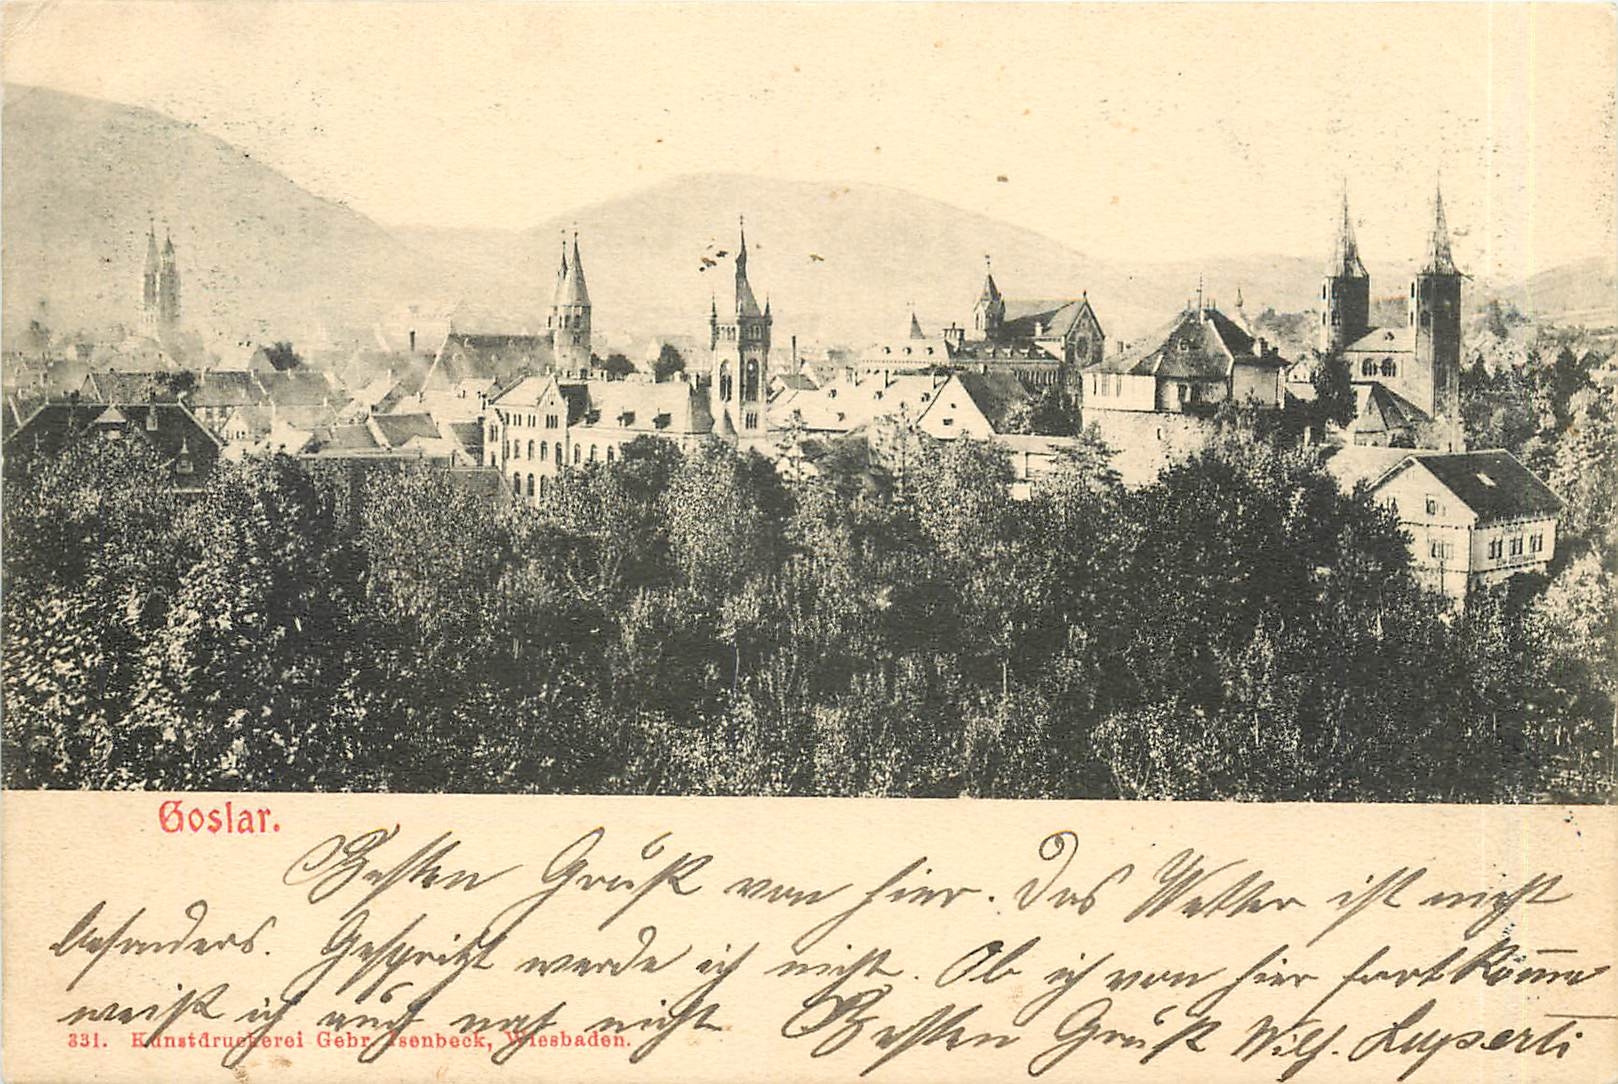 Goslar.
Besten Gruß von hier. Das Wetter ist nicht
besonders. Gespritzt werde ich nicht. Ob ich von hier fortkomme
weiß ich auch noch nicht. Besten Gruß Wilh.
331. Kunstdruckerei Gebr. Isenbeck, Wiesbaden.